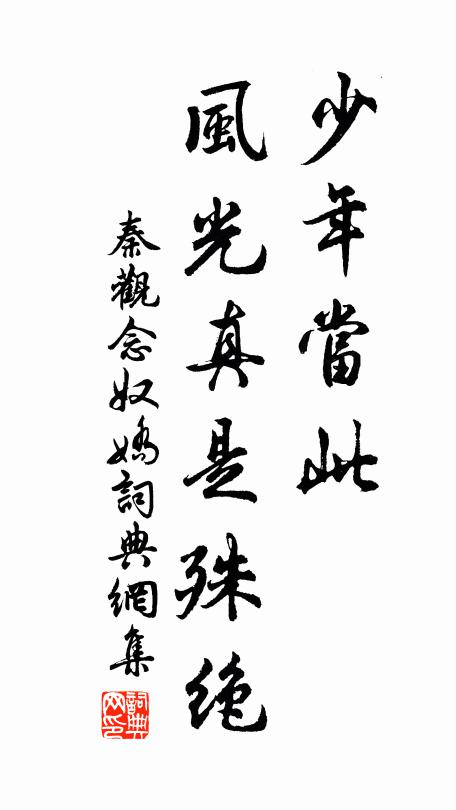 少年當此
風光真是殊絶
秦觀念奴嬌詞典網集
詞典網印